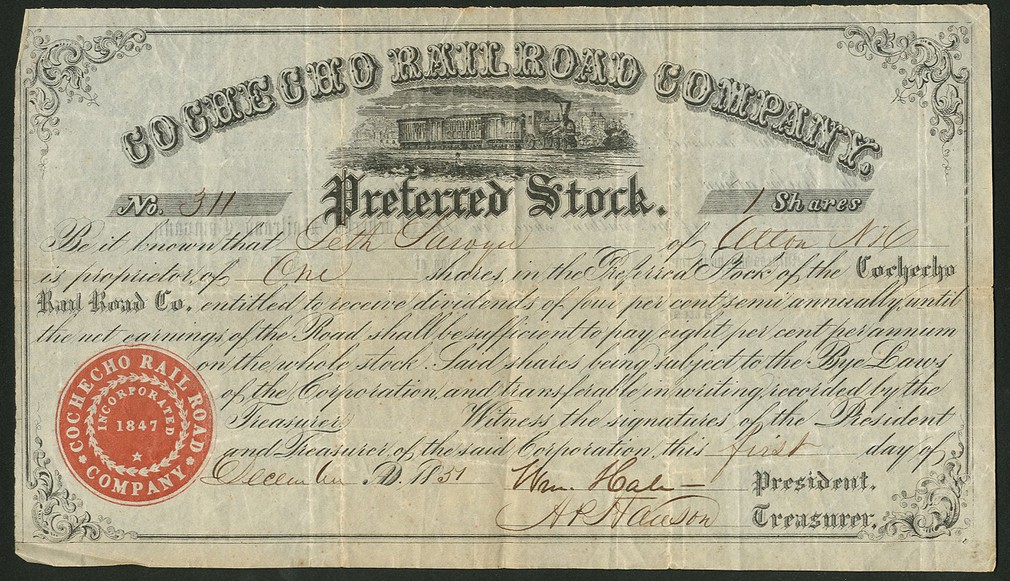 COCHECHO RAIL ROAD COMPANY.
No. 311
Preferred Stock.
1 Shares
Be it known that Seth Sawyer of Alton NH
is proprietor of One shares, in the Preferred Stock of the Cochecho
Rail Road Co. entitled to receive dividends of four per cent semi annually, until
the net earnings of the Road shall be sufficient to pay eight per cent per annum
on the whole stock. Said shares being subject to the Bye Laws
of the Corporation, and transferable in writing, recorded by the
Treasurer. Witness the signatures of the President
and Treasurer of the said Corporation, this first day of
December A.D. 1851
Wm. Hale President.
Treasurer.
COCHECHO RAIL ROAD COMPANY
INCORPORATED
1847